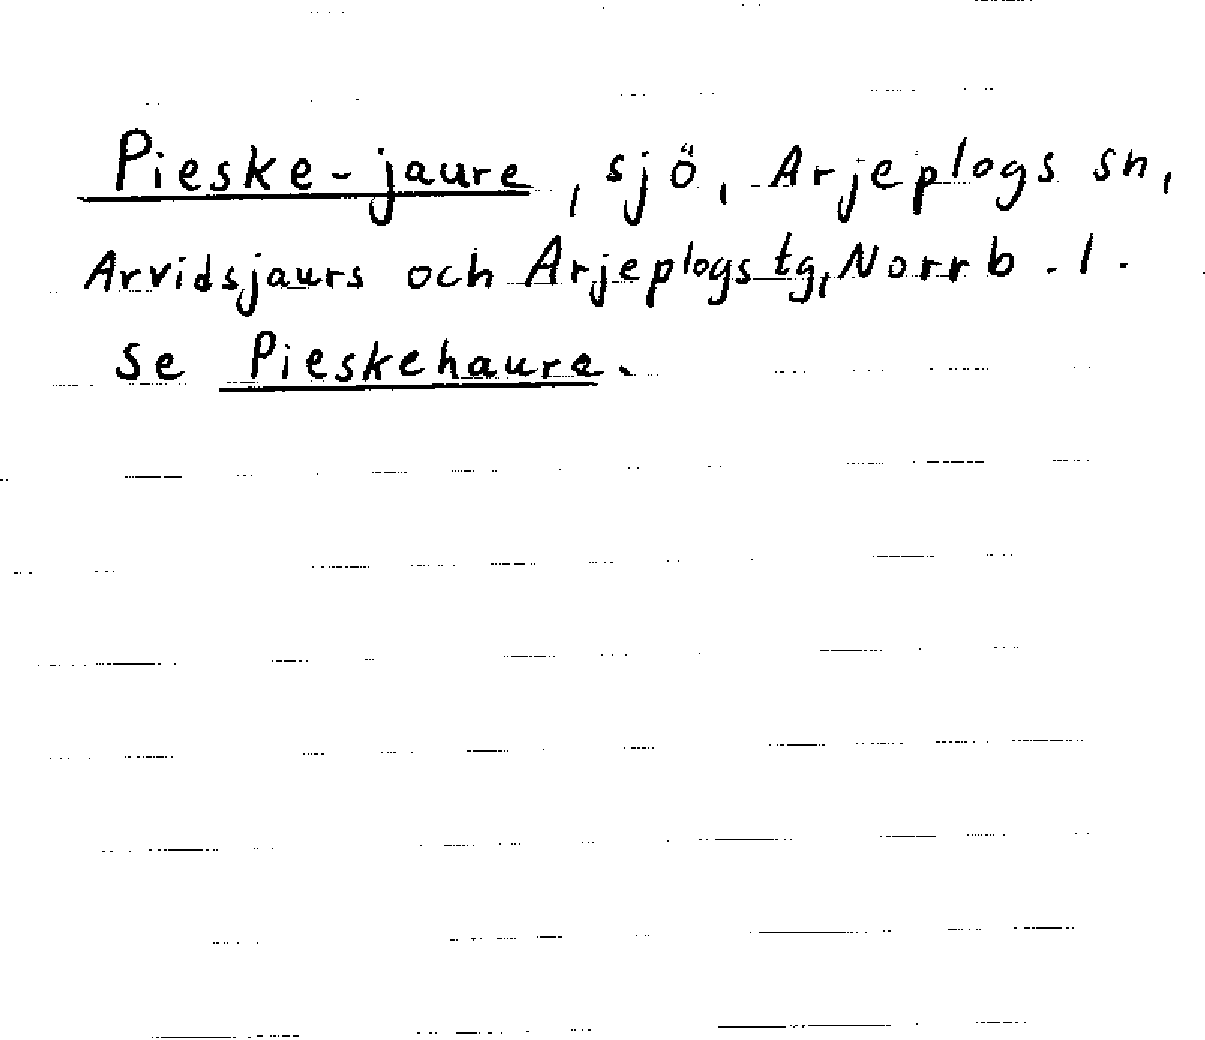 Pieske-jaure, sjö, Arjeplogs sn,
Arvidsjaurs och Arjeplogs tg, Norrb. l.
Se Pieskehaure.